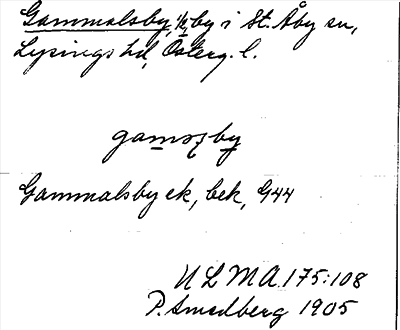 Gammalsby, 1/2 by i St. Åby sn,
Lysings hd, Österg. l.
gamsby
Gammalsby ek, bek, G44
ULMA 175:108
P. Smedberg 1905